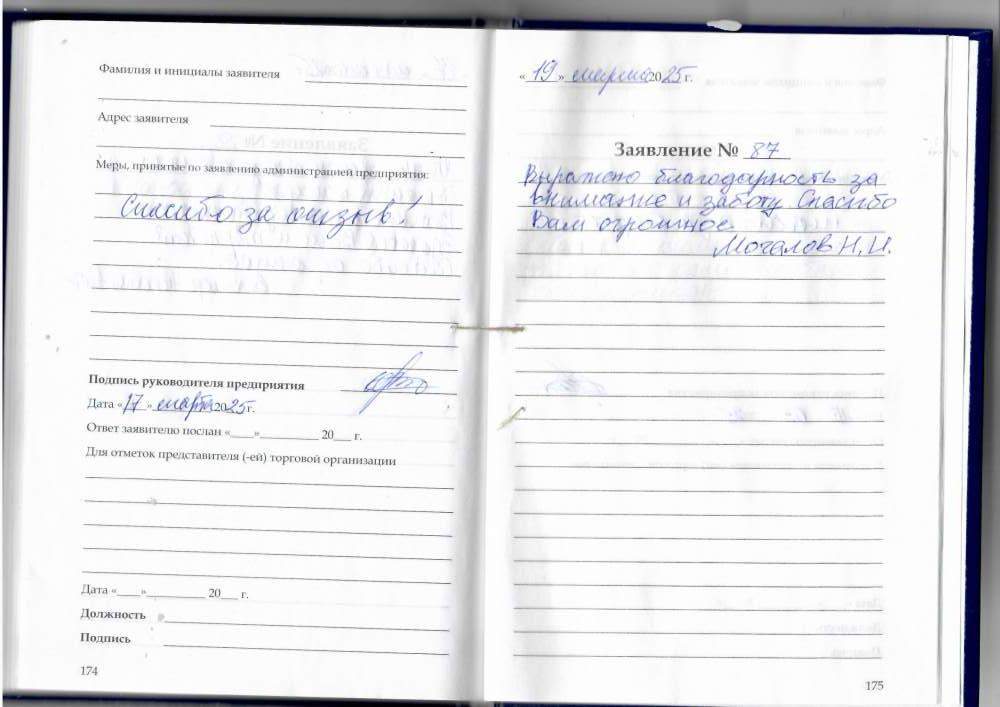 Фамилия и инициалы заявителя
Адрес заявителя
Меры, принятые по заявлению администрацией предприятия:
Спасибо за отзыв!
Подпись руководителя предприятия
Дата «17» марта 2025 г.
Ответ заявителю послан «____»__________ 20___ г.
Для отметок представителя (-ей) торговой организации
Дата «____»__________ 20___ г.
Должность
Подпись
174
«19» марта 2025 г.
Заявление № 87
Выражаю благодарность за
внимание и заботу. Спасибо
Вам огромное.
Мочалов Н.И.
175